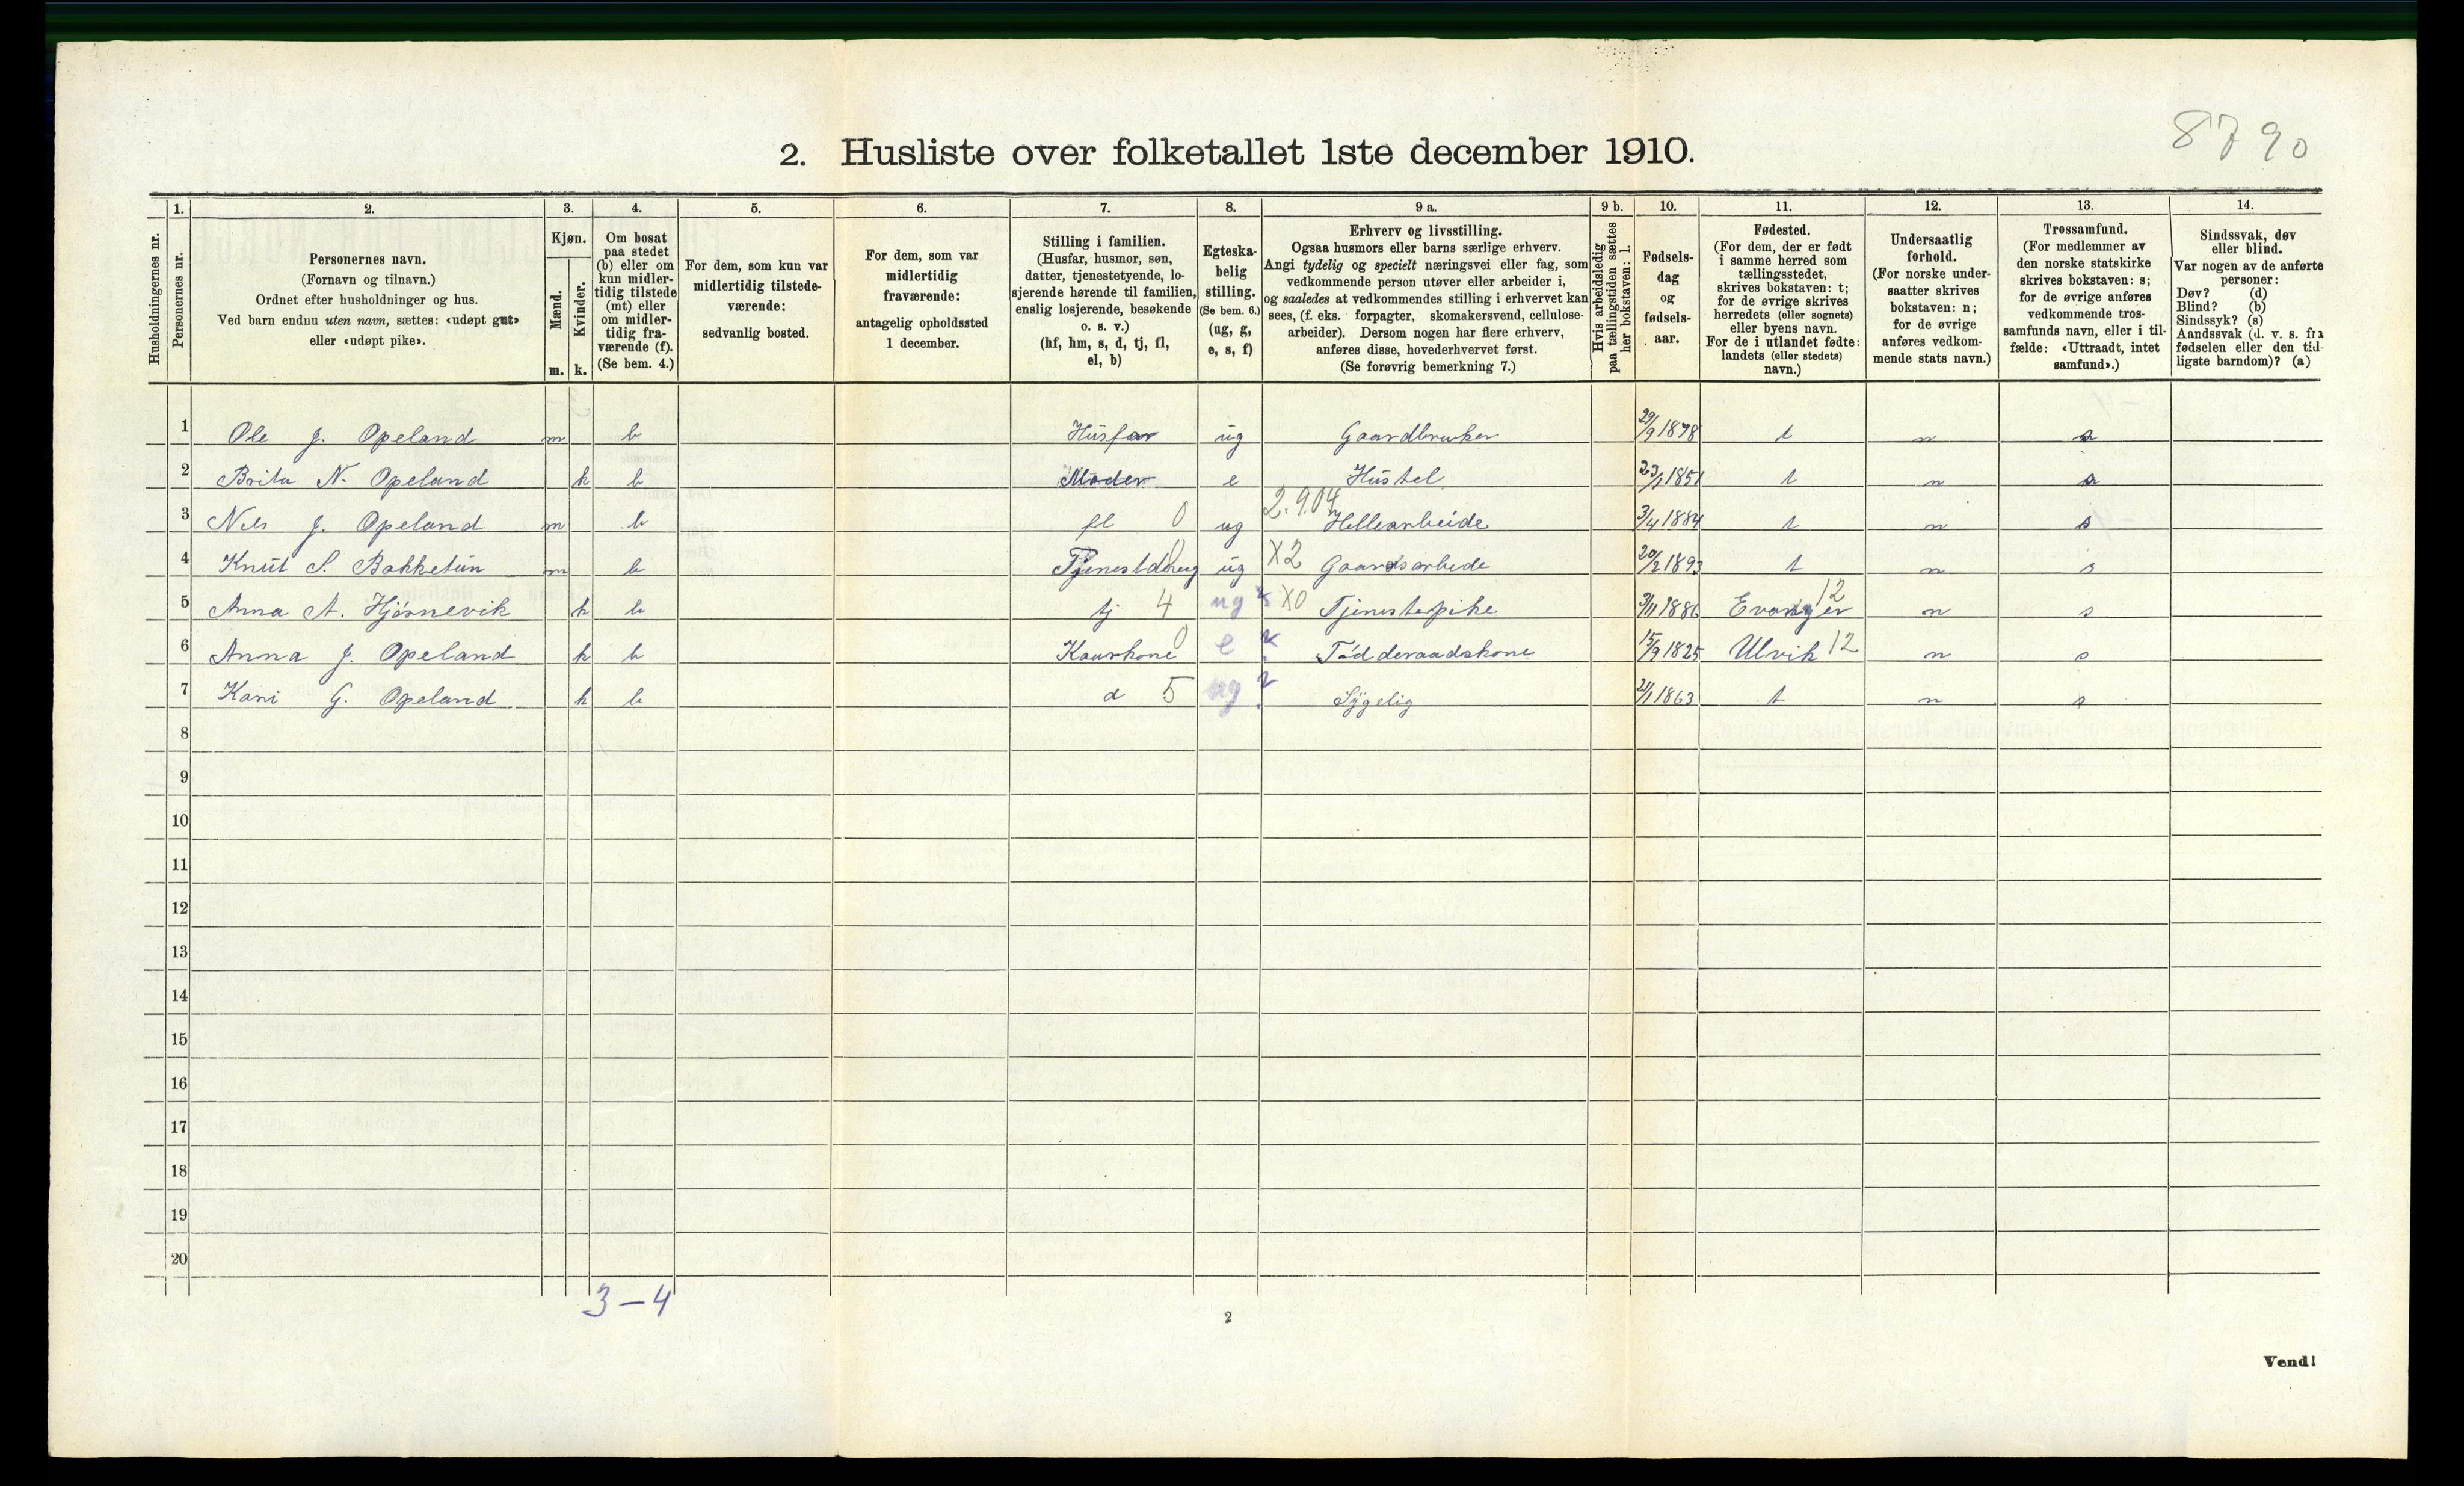 8790
2. Husliste over folketallet 1ste december 1910.
Husholdningernes nr.
1.
Personernes nr.
2.
Personernes navn.
(Fornavn og tilnavn.)
Ordnet efter husholdninger og hus.
Ved barn endnu uten navn, sættes: «udøpt gut»
eller «udøpt pike».
3.
Kjøn.
Mænd.
Kvinder.
m. k.
4.
Om bosat
paa stedet
(b) eller om
kun midler-
tidig tilstede
(mt) eller
om midler-
tidig fra-
værende (f).
(Se bem. 4.)
5.
For dem, som kun var
midlertidig tilstede-
værende:
sedvanlig bosted.
6.
For dem, som var
midlertidig
fraværende:
antagelig opholdssted
1 december.
7.
Stilling i familien.
(Husfar, husmor, søn,
datter, tjenestetyende, lo-
sjerende hørende til familien,
enslig losjerende, besøkende
o. s. v.)
(hf, hm, s, d, tj, fl,
el, b)
8.
Egteska-
belig
stilling.
(Se bem. 6.)
(ug, g,
e, s, f)
9 a.
Erhverv og livsstilling.
Ogsaa husmors eller barns særlige erhverv.
Angi tydelig og specielt næringsvei eller fag, som
vedkommende person utøver eller arbeider i,
og saaledes at vedkommendes stilling i erhvervet kan
sees, (f. eks. forpagter, skomakersvend, cellulose-
arbeider). Dersom nogen har flere erhverv,
anføres disse, hovederhvervet først.
(Se forøvrig bemerkning 7.)
9 b.
Hvis arbeidsledig
paa tællingstiden sættes
her bokstaven: l.
10.
Fødsels-
dag
og
fødsels-
aar.
11.
Fødested.
(For dem, der er født
i samme herred som
tællingsstedet,
skrives bokstaven: t;
for de øvrige skrives
herredets (eller sognets)
eller byens navn.
For de i utlandet fødte:
landets (eller stedets)
navn.)
12.
Undersaatlig
forhold.
(For norske under-
saatter skrives
bokstaven: n;
for de øvrige
anføres vedkom-
mende stats navn.)
13.
Trossamfund.
(For medlemmer av
den norske statskirke
skrives bokstaven: s;
for de øvrige anføres
vedkommende tros-
samfunds navn, eller i til-
fælde: «Uttraadt, intet
samfund».)
14.
Sindssvak, døv
eller blind.
Var nogen av de anførte
personer:
Døv? (d)
Blind? (b)
Sindssyk? (s)
Aandssvak (d. v. s. fra
fødselen eller den tid-
ligste barndom)? (a)
1 Ole J. Opeland m b Husfar ug Gaardbruker 29/9 1878 t n s
2 Brita N. Opeland k b Moder e Hustel 23/1 1851 t n s
3 Nils J. Opeland m b fl 0 ug 2.9.04 Hellearbeide 3/4 1884 t n s
4 Knut S. Bakketun m b Tjenestdreng 0 ug X2 Gaardsarbede 20/2 1893 t n s
5 Anna A. Hjørnevik k b tj 4 ug X0 Tjenestepike 3/11 1886 Evanger 12 n s
6 Anna J. Opeland k b Kaarkone 0 e Føderaadskone 15/9 1825 Ulvik 12 n s
7 Kari G. Opeland k b d 5 ug ? Sygelig 21/1 1863 t n s
8
9
10
11
12
13
14
15
16
17
18
19
20
3-4
2
Vend!